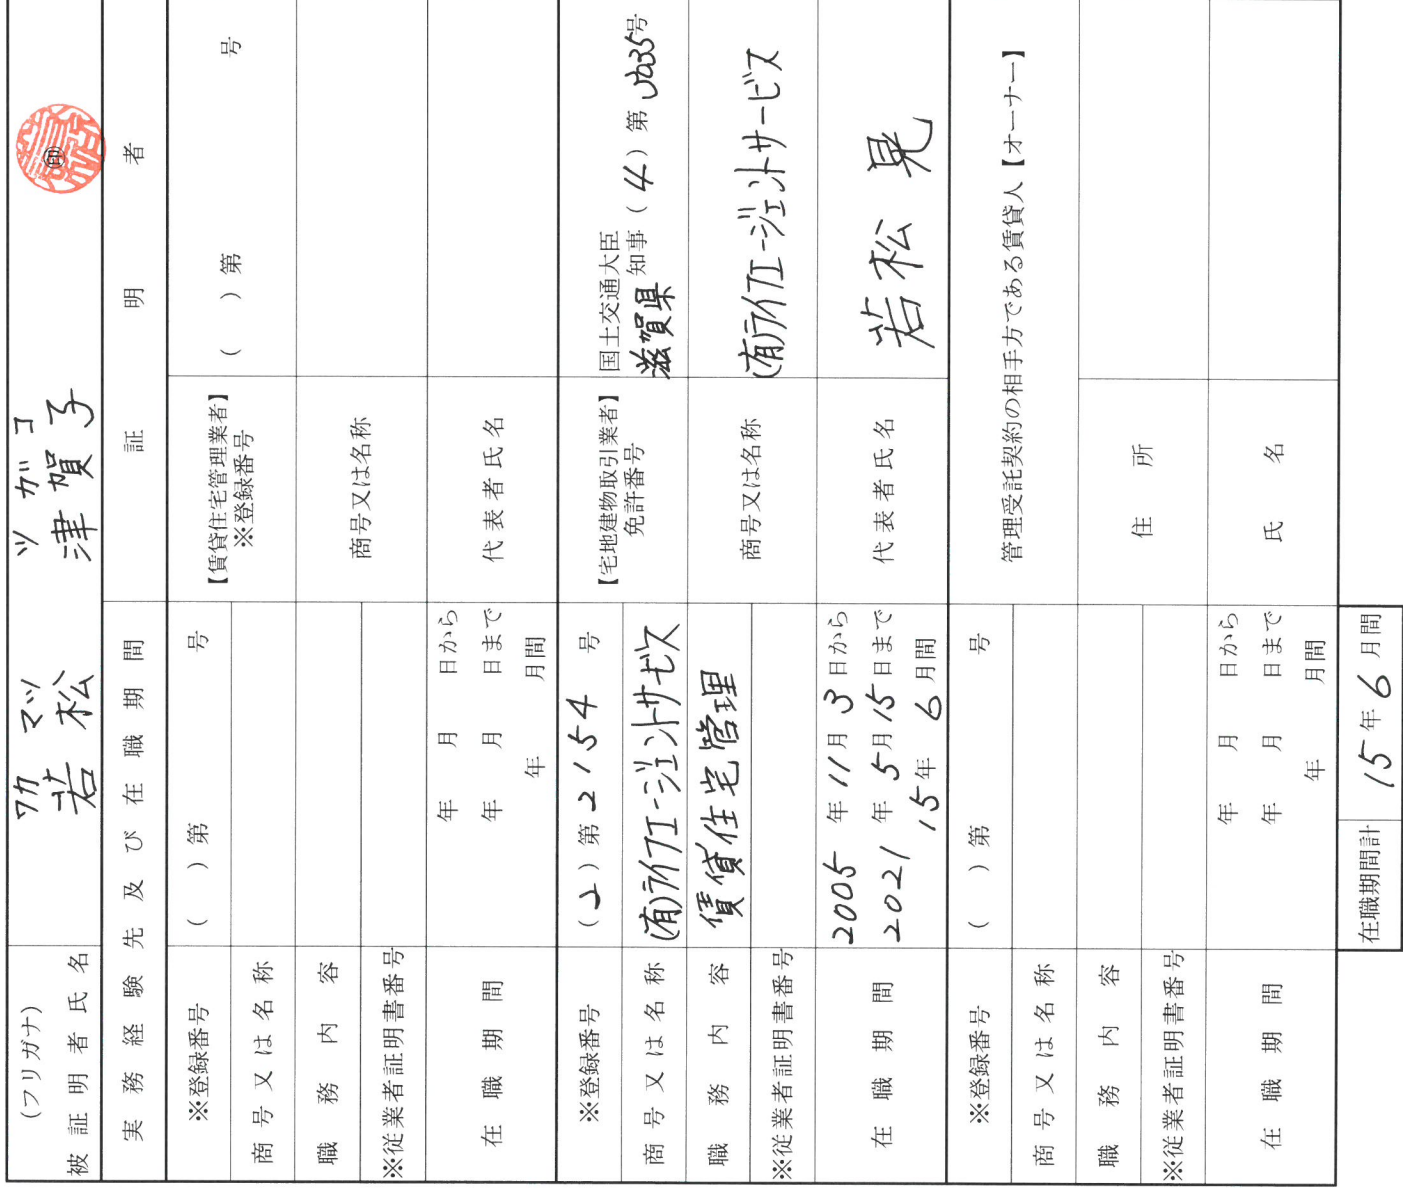 (フリガナ) ワカ マツ ツ ガ コ
被証明者氏名 若松 津賀子 ㊞
実務経験先及び在職期間 証明者
※登録番号 ( )第 号
商号又は名称
職務内容
※従業者証明書番号
在職期間 年 月 日から
年 月 日まで
年 月間
【賃貸住宅管理業者】
※登録番号 ( )第 号
商号又は名称
代表者氏名
※登録番号 (2)第2154号
商号又は名称 (有)ライフエージェントサービス
職務内容 賃貸住宅管理
※従業者証明書番号
在職期間 2005年11月3日から
2021年5月15日まで
15年6月間
【宅地建物取引業者】
免許番号
国土交通大臣
滋賀県 知事(4)第 号
商号又は名称 (有)ライフエージェントサービス
代表者氏名 若松 晃
※登録番号 ( )第 号
商号又は名称
職務内容
※従業者証明書番号
在職期間 年 月 日から
年 月 日まで
年 月間
管理受託契約の相手方である賃貸人【オーナー】
住所
氏名
在職期間計 15年6月間